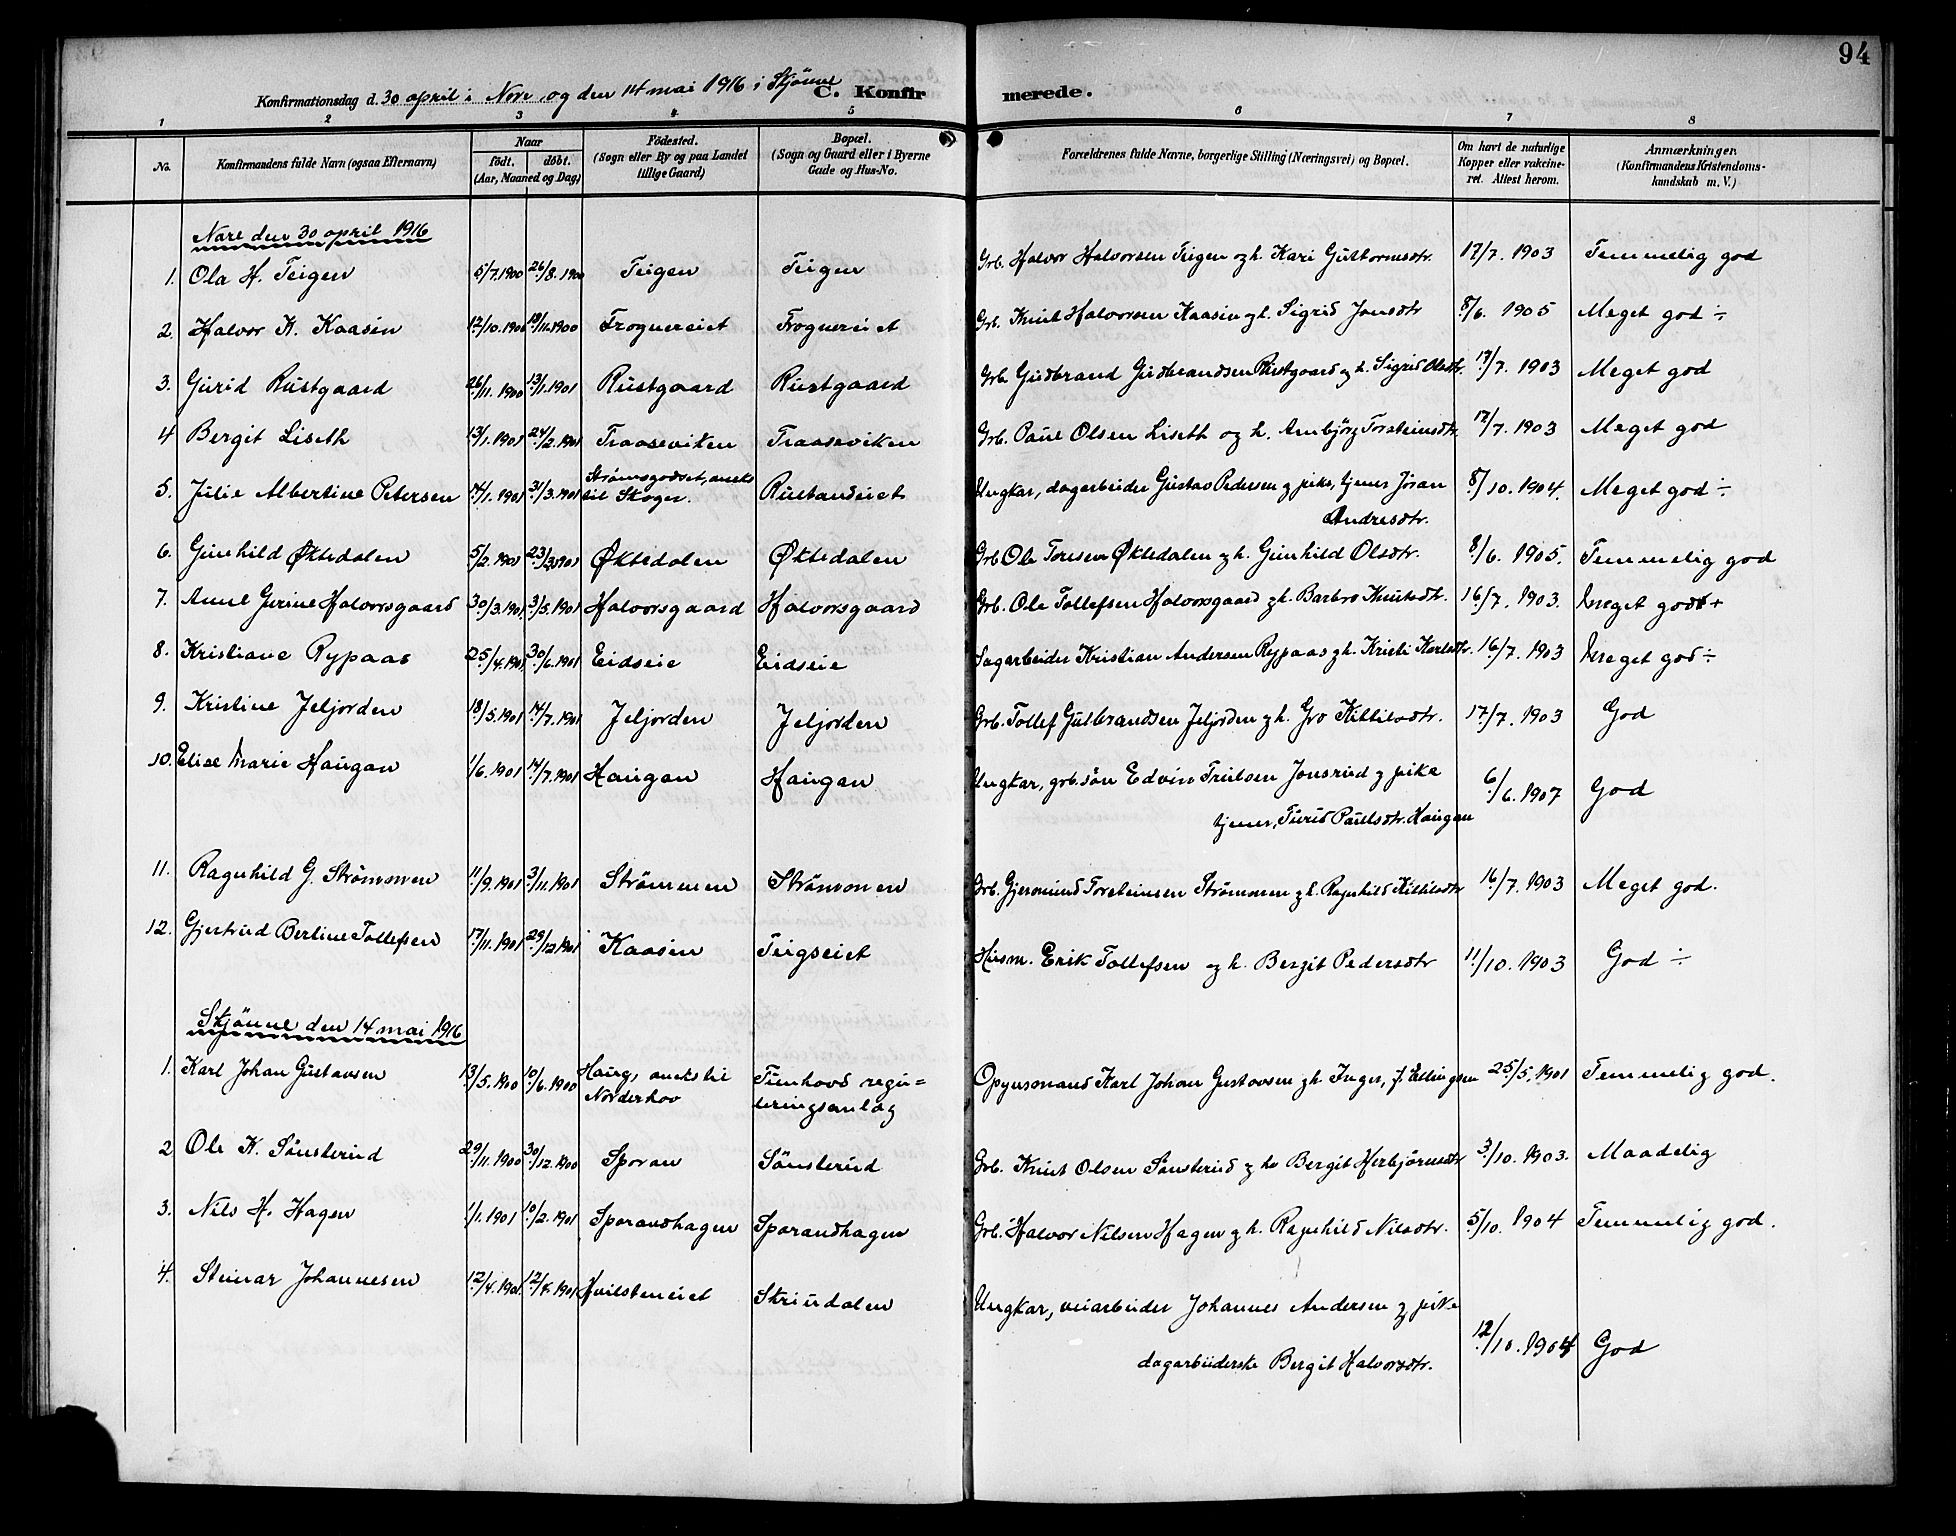 94
Konfirmationsdag d. 30 april i Nore, og den 14 mai 1916 i Skjönne C. Konfirmerede.
1 2 3 4 5 6 7 8
No. Konfirmandens fulde Navn (ogsaa Efternavn) Naar födt. döbt. (Aar, Maaned og Dag) Födested. (Sogn eller By og paa Landet tillige Gaard) Bopæl. (Sogn og Gaard eller i Byerne Gade og Hus-No. Forældrenes fulde Navne, borgerlige Stilling (Næringsvei) og Bopæl. Om havt de naturlige Kopper eller vakcineret. Attest herom. Anmærkninger. (Konfirmandens Kristendomskundskab m. V.)
Nore den 30 april 1916
1. Ola H. Teigen 5/7.1900 26/8.1900 Teigen Teigen Grb. Halvor Halvorsen Teigen og h. Kari Guttormsdtr. 17/7. 1903 Temmelig god
2. Halvor K. Kaasin 12/10.1900 18/11.1900 Frognereiet Frognereiet Grb. Knut Halvorsen Kaasin g h. Sigrid Jonsdtr 8/6. 1905 Meget god ÷
3. Gurid Rustgaard 26/11.1900 13/1.1901 Rustgaard Rustgaard Grb. Gudbrand Gudbrandsen Rustgaard og h. Sigrid Olsdtr. 17/7. 1903 Meget god
4 Bergit Liseth 13/1.1901 24/2.1901 Traaseviken Traaseviken Grb. Paul Olsen Liseth og h. Ambjörg Torsteinsdtr. 17/7. 1903 Meget god
5. Julie Albertine Petersen 14/1.1901 31/3.1901 Strømsgodset, aneks til Skoger. Rustandeiet Ungkar, dagarbeider Gustav Pedersen g pike, tjener Jöran
Andresdtr. 8/10. 1904. Meget god ÷
6. Gunhild Øktedalen 5/2.1901 23/3.1901 Øktedalen Øktedalen Grb. Ole Toresen Øktedalen g h. Gunhild Olsdtr. 8/6. 1905. Temmelig god
7. Anne Gurine Halvorsgaard 30/3.1901 3/5.1901 Halvorsgaard Halvorsgaard Grb. Ole Tollefsen Halvorsgaard g h. Barbro Knutsdtr. 16/7. 1903. Meget godt +
8. Kristiane Rypaas 25/4.1901 30/6.1901 Eidseie Eidseie Sagarbeider Kristian Andersen Rypaas g h. Kristi Karlsdtr. 16/7. 1903 Meget god ÷
9. Kristine Jeljorden 18/5.1901 14/7.1901 Jeljorden Jeljorden Grb. Tollef Gulbrandsen Jeljorden g h. Gro Kittilsdtr. 17/7. 1903 God
10. Elise Marie Haugan 1/6.1901 14/7.1901 Haugan Haugan Ungkar, grb.sön Edvin Trulsen Jonsrud g pike
tjener, Turid Paulsdtr. Haugan 6/6. 1907 God
11. Ragnhild G. Strømmen 11/9.1901 3/11.1901 Strømmen Strømmen Grb. Gjermund Torsteinsen Strømmen g h. Ragnhild Kittilsdtr 16/7. 1903 Meget god.
12. Gjertrud Berline Tollefsen 17/11.1901 29/12.1901 Kaasin Teigseiet Husm. Erik Tollefsen og h. Bergit Pedersdtr 11/10. 1903 God ÷
Skjönne den 14 mai 1916
1. Karl Johan Gustavsen 13/5.1900 10/6.1900 Haug, aneks til Norderhov Tunhovd reguleringsanlæg Opsynsmand Karl Johan Gustavsen g h. Inger, f. Ellingsen 25/5. 1901 Temmelig god.
2 Ole K. Sönsterud 29/11.1900 30/12.1900 Sporan Sönsterud Grb. Knut Olsen Sønsterud g h. Bergit Herbjörnsdtr 3/10. 1903. Maadelig
3. Nils H. Hagen 1/1.1901 10/2.1901 Sporandhagen Sporandhagen Grb. Halvor Nilsen Hagen g h. Ragnhild Nilsdtr. 5/10. 1904 Temmelig god.
4. Steinar Johannesen 12/4.1901 Hvilsteneiet Skriudalen Ungkar, veiarbeider Johannes Andersen og pike
dagarbeiderske Bergit Halvorsdtr. 12/10. 1904 God